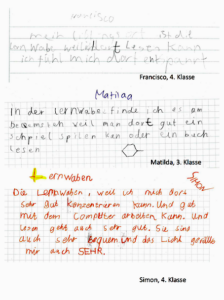 mein
ist die
Lernwabe weil ich Lesen kann
ich fühl mich dort entspannt
Francisco, 4. Klasse
Matilda
In der Lernwabe finde ich es am
weil man dort gut ein
spilen kan oder ein buch
lesen
Matilda, 3. Klasse
Lernwaben
Die Lernwaben, weil ich mich dort
sehr gut Konzentrieren kann. Und gut
mit dem Computer arbeiten kann. Und
lesen geht auch sehr gut. Sie sind
auch sehr bequem und das Licht gefällt
mir auch SEHR.
Simon, 4. Klasse